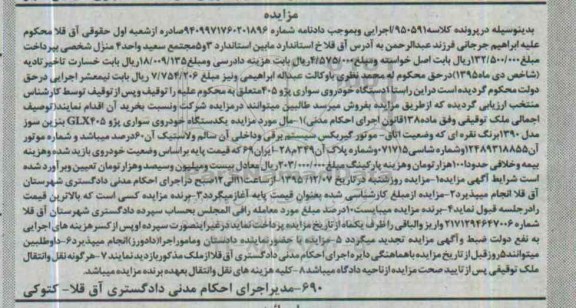 مزایده
بدینوسیله درپرونده کلاسه ۹۵۰۵۹۱/اجرایی وبموجب دادنامه شماره ۹۴۰۹۹۷۱۷۶۰۲۰۱۸۹۶صادره ازشعبه اول حقوقی آق قلا محکوم
علیه ابراهیم جرجانی فرزند عبدالرحمن به آدرس آق قلاخ استاندارد مابین استاندارد ۳و۵مجتمع سعید واحد۴ منزل شخصی بپرداخت
مبلغ۱۳۲/۵۰۰/۰۰۰ریال بابت اصل خواسته ومبلغ۴/۵۷۵/۰۰۰ریال بابت هزینه دادرسی ومبلغ۱۸/۰۰۹/۱۳۵ریال بابت خسارت تاخیرتادیه
(شاخص دی ماه۱۳۹۵)درحق محکوم له محمد نظری باوکالت عبداله ابراهیمی ونیز مبلغ ۷/۷۵۴/۲۰۶ ریال بابت نیمعشر اجرایی درحق
دولت محکوم گردیده است دراین راستا ۱دستگاه خودروی سواری پژو ۴۰۵متعلق به محکوم علیه را توقیف وپس از توقیف توسط کارشناس
منتخب ارزیابی گردیده که ازطریق مزایده بفروش میرسد طالبین میتوانند درمزایده شرکت ونسبت بخرید آن اقدام نمایند/توصیف
اجمالی ملک توقیفی وفق ماده۱۳۸قانون اجرای احکام مدنی/۱-مال مورد مزایده یکدستگاه خودروی سواری پژو GLX۴۰۵ بنزین سوز
مدل ۱۳۹۰برنگ نقره ای که وضعیت اتاق- موتورگیربکس- سیستم برقی وداخلی آن سالم ولاستیک آن۶۰درصد میباشد و شماره موتور
آن۱۲۴۸۹۳۱۸۸۵۵وشماره شاسی۰۷۱۷۱۵ وشماره پلاک آن۳۲۸م۲۹-ایران۶۹ که قیمت پایه براساس وضعیت خودروی بازید شده وهزینه
بیمه وخلافی حدود۱۰۰هزار تومان وهزینه پارکینگ مبلغ۲۰۳/۰۰۰/۰۰۰ریال معادل بیست ومیلیون وسیصد وهزار تومان تعیین وبرآورد شده
است شرایط آگهی مزایده۱-مزایده روزشنبه در تاریخ ۱۳۹۵/۱۲/۰۷ ازساعت۱۰الی۱۱صبح دراجرای احکام مدنی دادگستری شهرستان
آق قلا انجام میپذیرد۲-مزایده ازمبلغ کارشناسی شده بعنوان قیمت پایه آغازمیگردد۳-برنده مزایده کسی است که بالاترین قیمت
رادرجلسه قبول نماید۴-برنده مزایده میبایست۱۰درصد مبلغ مورد معامله رافی المجلس بحساب سپرده دادگستری شهرستان آق قلا
شماره۲۱۷۱۲۹۴۶۴۷۰۰۶ واریز والباقی را ظرف یکماه از تاریخ مزایده پرداخت نماید درغیراینصورت سپرده اوپس از کسرهزینه های اجرایی
به نفع دولت ضبط وآگهی مزایده تجدید میگردد ۵-مزایده با حضورنماینده دادستان ومامور اجرا(دادورز)انجام میپذیرد۶-داوطلبین
میتوانند۵روزقبل از تاریخ مزایده باهماهنگی دایره اجرای احکام مدنی دادگستری آق قلاازملک مذکوربازدید نمایند ۷-هرگونه نقل وانتقال
ملک توقیفی پس از تایید صحت مزایده ازناحیه دادگاه میباشد ۸-کلیه هزینه های نقل وانتقال بعهده برنده مزایده میباشد.
۶۹۰-مدیراجرای احکام مدنی دادگستری آق قلا- کتوکی